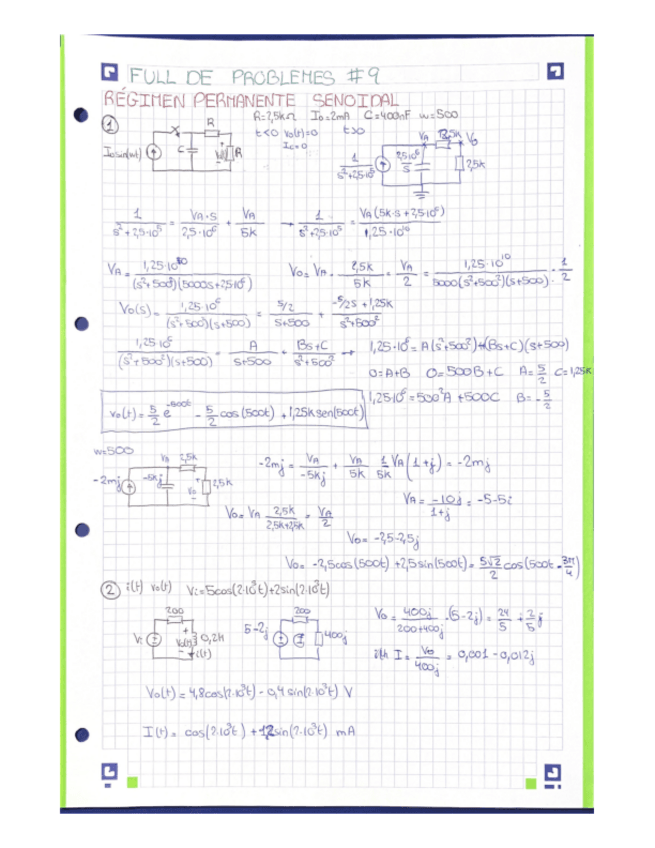 FULL DE PROBLEMES #9
RÉGIMEN PERMANENTE SENOIDAL
① R=2,5kΩ I₀=2mA C=400nF w=500
t<0 v₀(t)=0 t>0
I_C=0
I₀sin(wt) C R R
1/(s²+2,5·10⁵) 2,5·10⁶/s VA 2,5k V₀ 2,5k
1/(s²+2,5·10⁵) = VA·s/(2,5·10⁶) + VA/5k → 1/(s²+2,5·10⁵) = VA(5k·s+2,5·10⁶)/(1,25·10¹⁰)
VA = 1,25·10¹⁰/((s²+500²)(5000s+2,5·10⁶)) V₀ = VA · 2,5k/5k = VA/2 = 1,25·10¹⁰/(5000(s²+500²)(s+500)) · 1/2
V₀(s) = 1,25·10⁶/((s²+500²)(s+500)) = 5/2/(s+500) + (-5/2s + 1,25k)/(s²+500²)
1,25·10⁶/((s²+500²)(s+500)) = A/(s+500) + (Bs+C)/(s²+500²) → 1,25·10⁶ = A(s²+500²)+(Bs+C)(s+500)
0=A+B 0=500B+C A=5/2 C=1,25k
1,25·10⁶=500²A+500C B=-5/2
v₀(t)= 5/2 e^(-500t) - 5/2 cos(500t) + 1,25k sen(500t)
w=500
-2mj VA 2,5k -5kj V₀ 2,5k
-2mj = VA/(-5kj) + VA/5k 1/5k VA(1+j) = -2mj
VA = -10j/(1+j) = -5-5j
V₀ = VA 2,5k/(2,5k+2,5k) = VA/2
V₀ = -2,5-2,5j
V₀ = -2,5cos(500t) + 2,5sin(500t) = 5√2/2 cos(500t - 3π/4)
② i(t) v₀(t) Vi = 5cos(2·10³t)+2sin(2·10³t)
200 Vi V₀(t) 0,2H i(t)
200 5-2j 400j
V₀ = 400j/(200+400j) · (5-2j) = 24/5 + 2/5 j
I = V₀/400j = 0,001 - 0,012j
V₀(t) = 4,8cos(2·10³t) - 0,4sin(2·10³t) V
I(t) = cos(2·10³t) + 12sin(2·10³t) mA